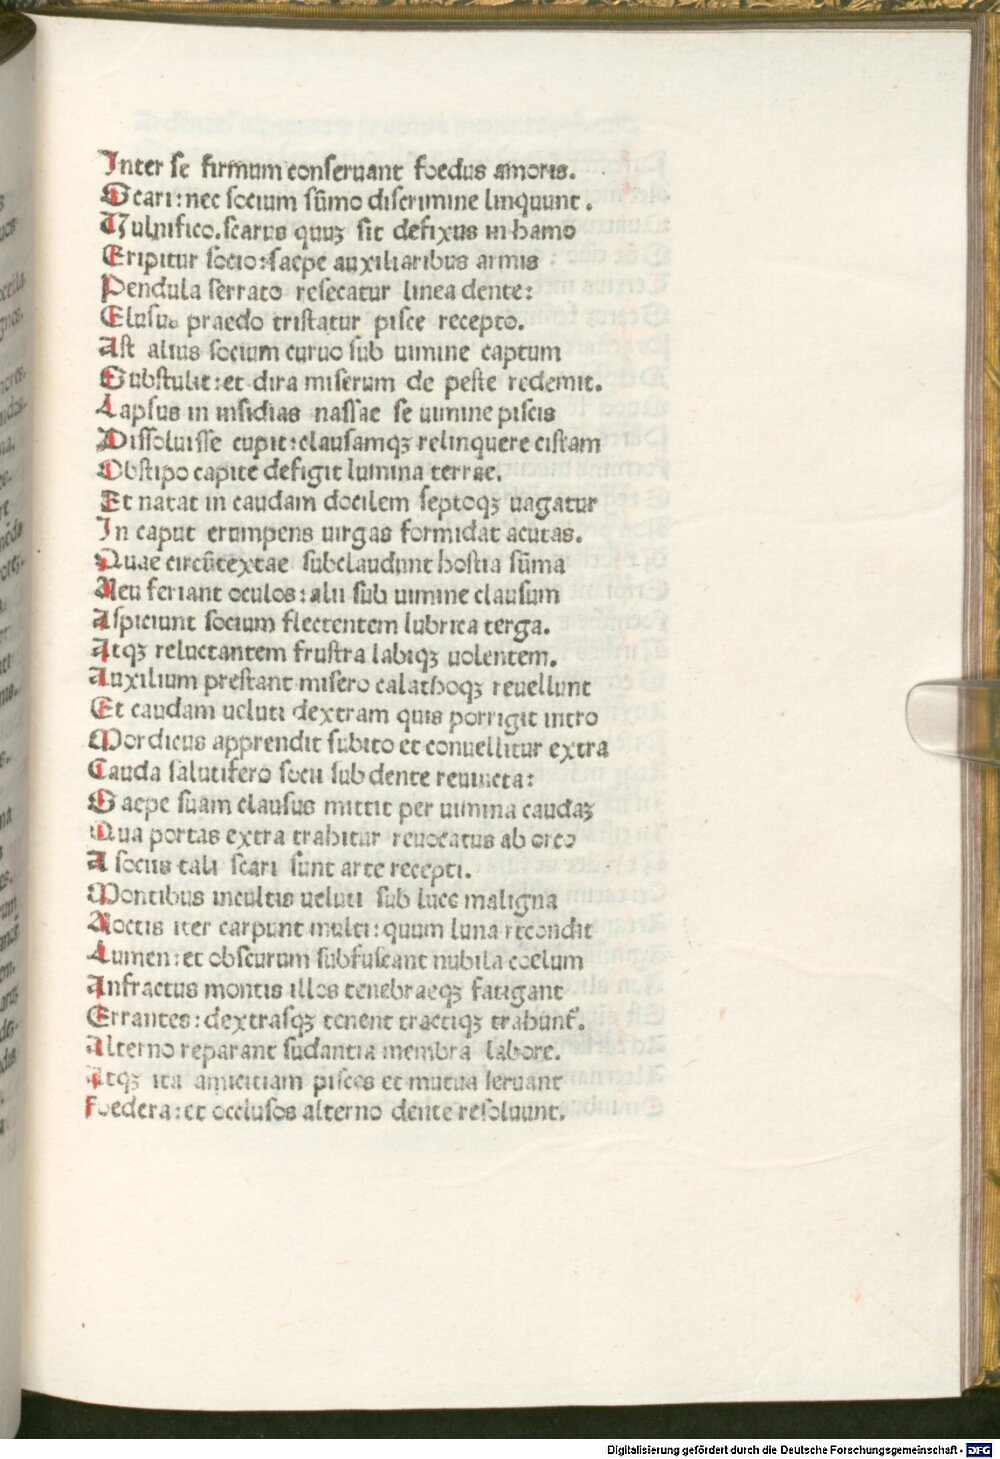 Inter se firmum conseruant foedus amoris.
Scari: nec socium sūmo discrimine linquunt.
Vulnifico. scarus quuꝫ sit defixus in hamo
Eripitur socio: saepe auxiliaribus armis
Pendula serrato resecatur linea dente:
Elusus praedo tristatur pisce recepto.
Ast alius socium curuo sub uimine captum
Substulit: et dira miserum de peste redemit.
Lapsus in insidias nassae se uimine piscis
Dissoluisse cupit: clausamqꝫ relinquere cistam
Obstipo capite defigit lumina terrae.
Et natat in caudam docilem septoqꝫ uagatur
In caput erumpens uirgas formidat acutas.
Quae circūtextae subclaudunt hostia sūma
Neu feriant oculos: alii sub uimine clausum
Aspiciunt socium flectentem lubrica terga.
Atqꝫ reluctantem frustra labiqꝫ uolentem.
Auxilium prestant misero calathoqꝫ reuellunt
Et caudam ueluti dextram quis porrigit intro
Mordicus apprendit subito et conuellitur extra
Cauda salutifero socii sub dente reuincta:
Saepe suam clausus mittit per uimina caudaꝫ
Qua portas extra trahitur reuocatus ab orco
A sociis tali scari sunt arte recepti.
Montibus incultis ueluti sub luce maligna
Noctis iter carpunt multi: quum luna recondit
Lumen: et obscurum subfuscant nubila coelum
Anfractus montis illos tenebraeqꝫ fatigant
Errantes: dextrasqꝫ tenent tractiqꝫ trahunt.
Alterno reparant sudantia membra labore.
Atqꝫ ita amicitiam pisces et mutua seruant
Foedera: et occlusos alterno dente resoluunt.
Digitalisierung gefördert durch die Deutsche Forschungsgemeinschaft - DFG